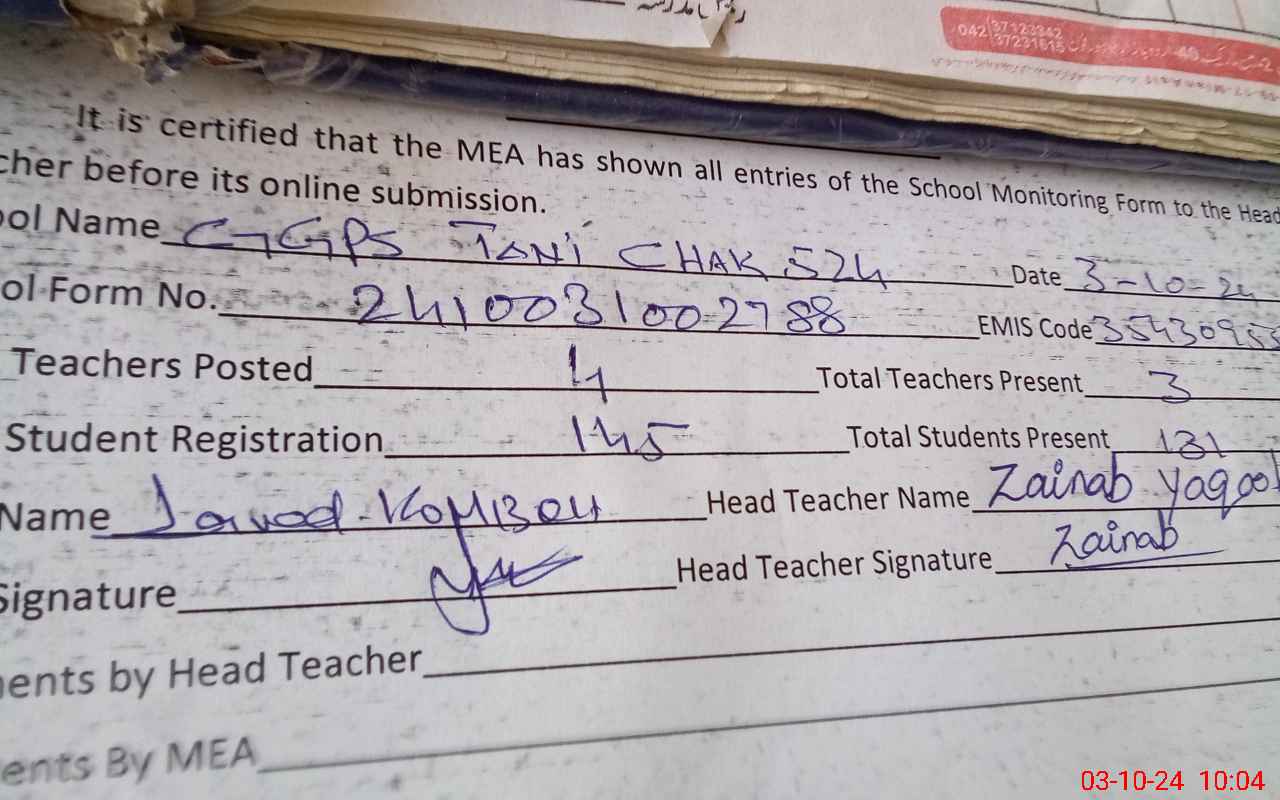 042 37123342
37231615
It is certified that the MEA has shown all entries of the School Monitoring Form to the Head
cher before its online submission.
ool Name GGPS TANi CHAK 524 Date 3-10-24
ol Form No. 2410031002788 EMIS Code 35430955
Teachers Posted 4 Total Teachers Present 3
Student Registration 145 Total Students Present 131
Name Javed-KOMBOH Head Teacher Name Zainab Yaqoob
Signature Head Teacher Signature Zainab
ents by Head Teacher
ents By MEA
03-10-24 10:04